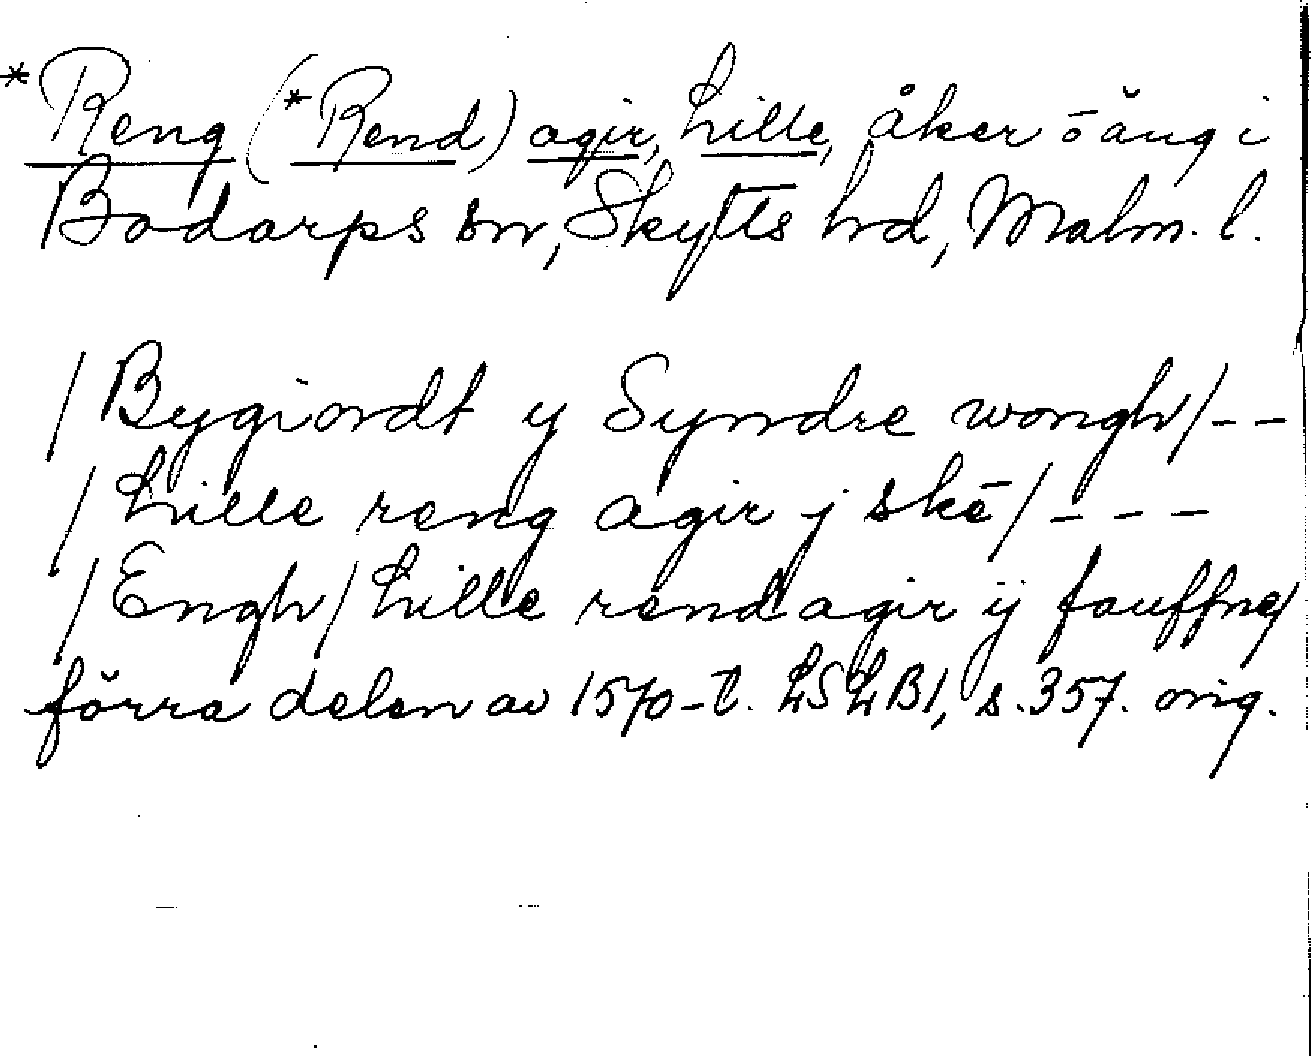 *Reng (*Rend) agir, Lille, åker o äng i
Bodarps sn, Skytts hd, Malm. l.
/Bygiordt y Syndre wongh/--
/Lille reng agir j skē/---
/Engh/Lille rendagir ij fouffne/
förra delen av 1570-t. LSLB1, s.357. orig.